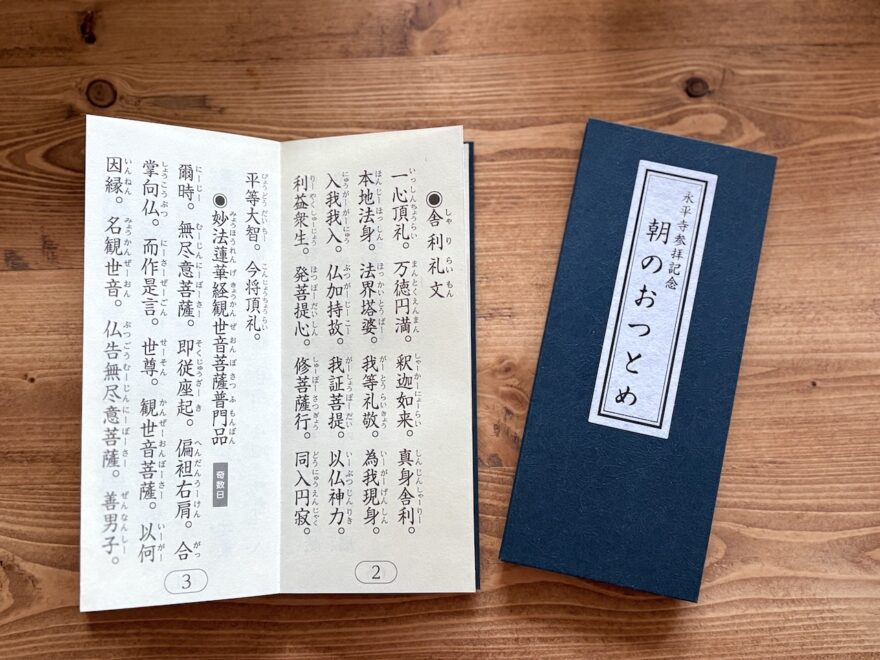 ●舎利礼文
一心頂礼。万徳円満。釈迦如来。真身舎利。
本地法身。法界塔婆。我等礼敬。為我現身。
入我我入。仏加持故。我証菩提。以仏神力。
利益衆生。発菩提心。修菩薩行。同入円寂。
2
平等大智。今将頂礼。
●妙法蓮華経観世音菩薩普門品 奇数日
爾時。無尽意菩薩。即従座起。偏袒右肩。合
掌向仏。而作是言。世尊。観世音菩薩。以何
因縁。名観世音。仏告無尽意菩薩。善男子。
3
永平寺参拝記念
朝のおつとめ